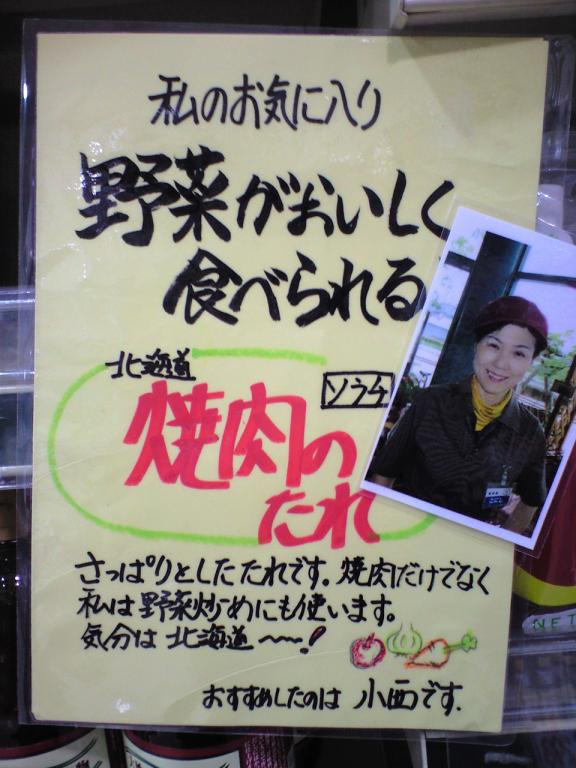 私のお気に入り
野菜がおいしく
食べられる
北海道
ソラチ
焼肉の
たれ
さっぱりとしたたれです。焼肉だけでなく
私は野菜炒めにも使います。
気分は北海道〜〜!
おすすめしたのは 小西です.
NET